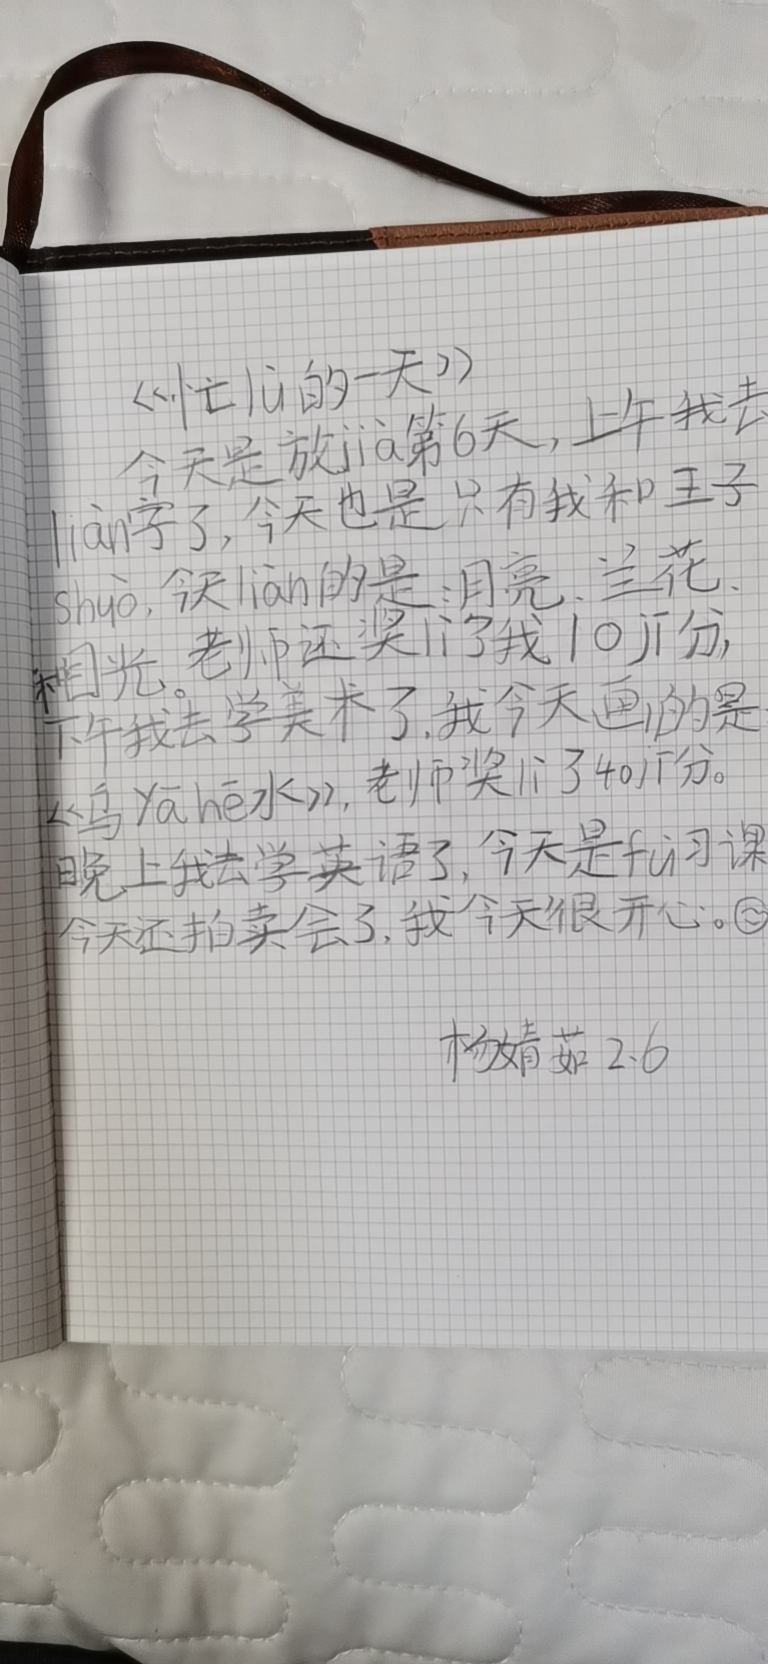 《忙lù的一天》
今天是放jià第6天,上午我去
liàn字了,今天也是只有我和王子
shuò,今天liàn的是:月亮、兰花、
和目光。老师还奖lì了我10jī分,
下午我去学美术了,我今天画的是
《乌yā hē水》,老师奖lì了40jī分。
晚上我去学英语了,今天是fù习课
今天还拍卖会了,我今天很开心。
杨婧茹 2.6